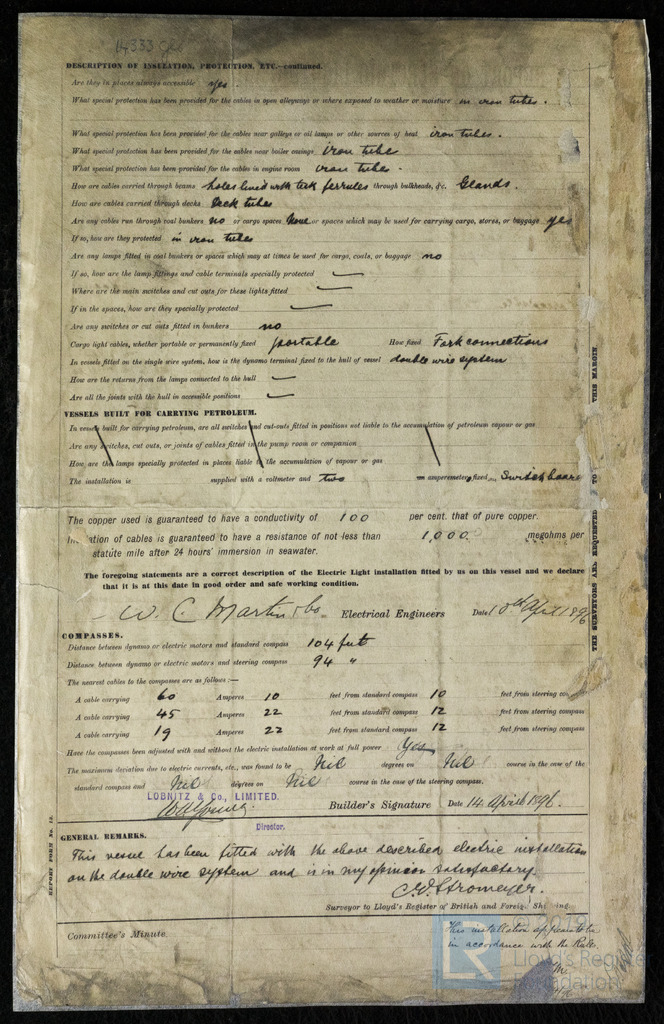 14333 Gls
DESCRIPTION OF INSULATION, PROTECTION, ETC.—continued.
Are they in places always accessible yes
What special protection has been provided for the cables in open alleyways or where exposed to weather or moisture in iron tubes.
What special protection has been provided for the cables near galleys or oil lamps or other sources of heat iron tubes.
What special protection has been provided for the cables near boiler casings iron tube
What special protection has been provided for the cables in engine room iron tube
How are cables carried through beams holes lined with teek ferrules through bulkheads, &c. Glands.
How are cables carried through decks Deck tubes
Are any cables run through coal bunkers no or cargo spaces None or spaces which may be used for carrying cargo, stores, or baggage yes
If so, how are they protected in iron tubes
Are any lamps fitted in coal bunkers or spaces which may at times be used for cargo, coals, or baggage no
If so, how are the lamp fittings and cable terminals specially protected —
Where are the main switches and cut outs for these lights fitted —
If in the spaces, how are they specially protected —
Are any switches or cut outs fitted in bunkers no
Cargo light cables, whether portable or permanently fixed portable How fixed Fork connections
In vessels fitted on the single wire system, how is the dynamo terminal fixed to the hull of vessel double wire system
How are the returns from the lamps connected to the hull —
Are all the joints with the hull in accessible positions —
VESSELS BUILT FOR CARRYING PETROLEUM.
In vessels built for carrying petroleum, are all switches and cut-outs fitted in positions not liable to the accumulation of petroleum vapour or gas
Are any switches, cut outs, or joints of cables fitted in the pump room or companion
How are the lamps specially protected in places liable to the accumulation of vapour or gas
The installation is supplied with a voltmeter and two an amperemeter, fixed Switchboard
The copper used is guaranteed to have a conductivity of 100 per cent. that of pure copper.
Insulation of cables is guaranteed to have a resistance of not less than 1,000 megohms per
statute mile after 24 hours' immersion in seawater.
The foregoing statements are a correct description of the Electric Light installation fitted by us on this vessel and we declare
that it is at this date in good order and safe working condition.
W. C. Martin & Co Electrical Engineers Date 10th April 1896
COMPASSES.
Distance between dynamo or electric motors and standard compass 104 feet
Distance between dynamo or electric motors and steering compass 94 "
The nearest cables to the compasses are as follows:—
A cable carrying 60 Amperes 10 feet from standard compass 10 feet from steering
A cable carrying 45 Amperes 22 feet from standard compass 12 feet from steering compass
A cable carrying 19 Amperes 22 feet from standard compass 12 feet from steering compass
Have the compasses been adjusted with and without the electric installation at work at full power Yes
The maximum deviation due to electric currents, etc., was found to be Nil degrees on Nil course in the case of the
standard compass and Nil degrees on Nil course in the case of the steering compass.
LOBNITZ & Co., LIMITED.
Builder's Signature Date 14 April 1896.
Director.
GENERAL REMARKS.
This vessel has been fitted with the above described electric installation
on the double wire system and is in my opinion satisfactory.
C. E. Stromeyer.
Surveyor to Lloyd's Register of British and Foreign Shipping
Committee's Minute
This installation appears to be
in accordance with the Rules
THE SURVEYORS ARE REQUESTED TO
THIS MARGIN.
REPORT FORM No. 13.
© 2019
LR
Lloyd's Register
Foundation